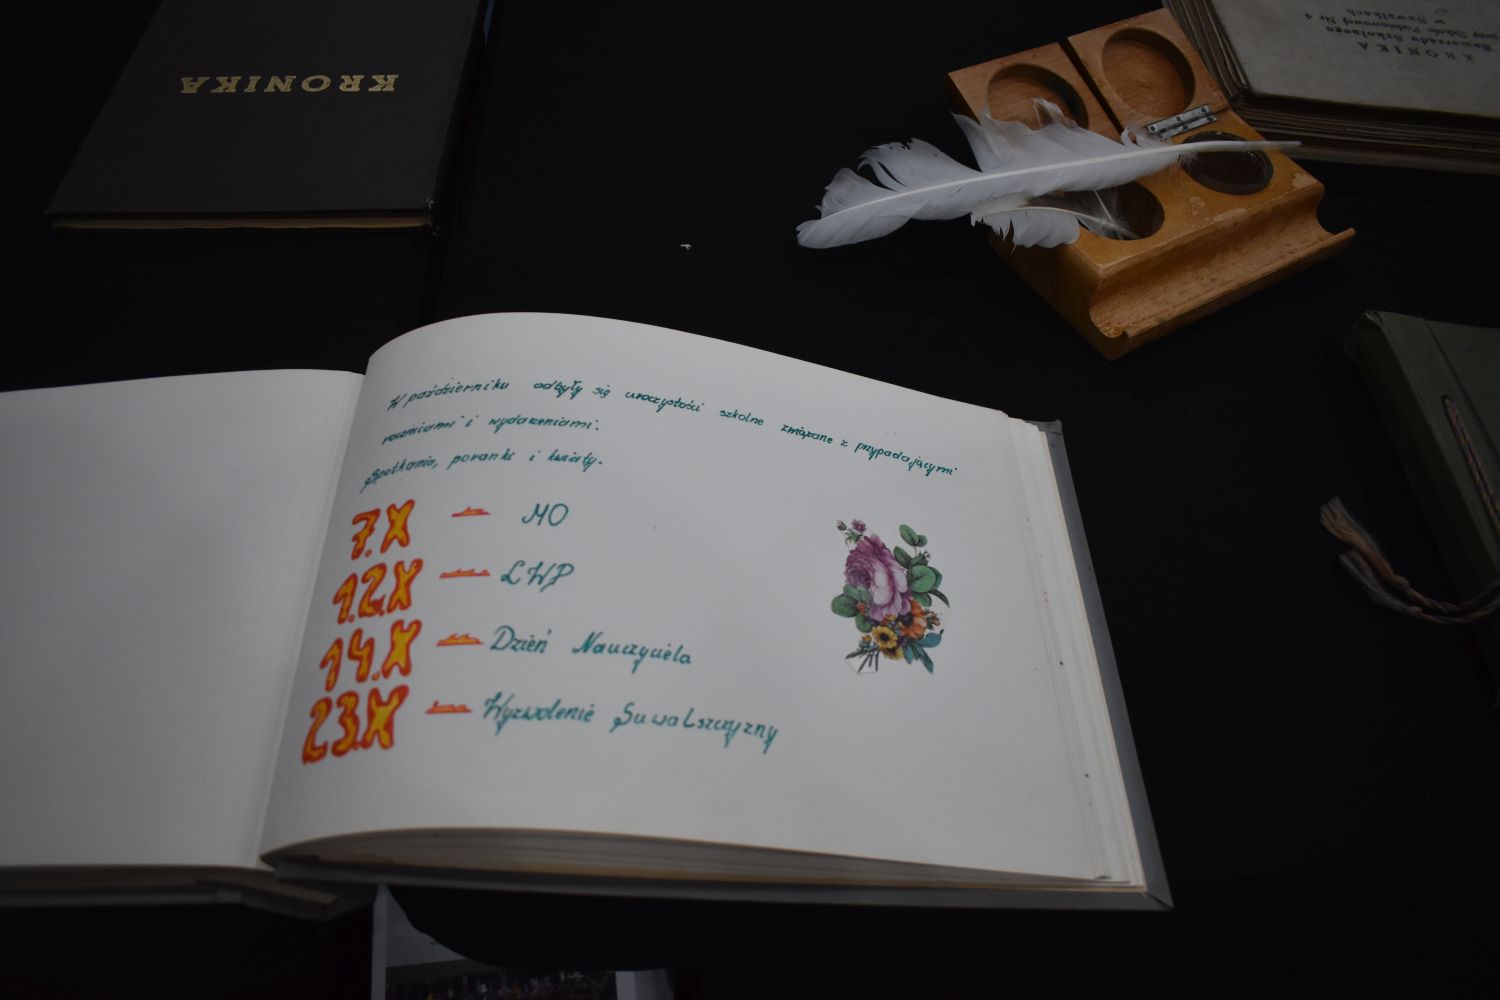 KRONIKA
KRONIKA
Samorządu Szkolnego
przy Szkole Podstawowej Nr 4
w Suwałkach
W październiku odbyły się uroczystości szkolne związane z przypadającymi
rocznicami i wydarzeniami.
Spotkania, poranki i kwiaty.
7.X — MO
12.X — LWP
14.X — Dzień Nauczyciela
23.X — Wyzwolenie Suwalszczyzny